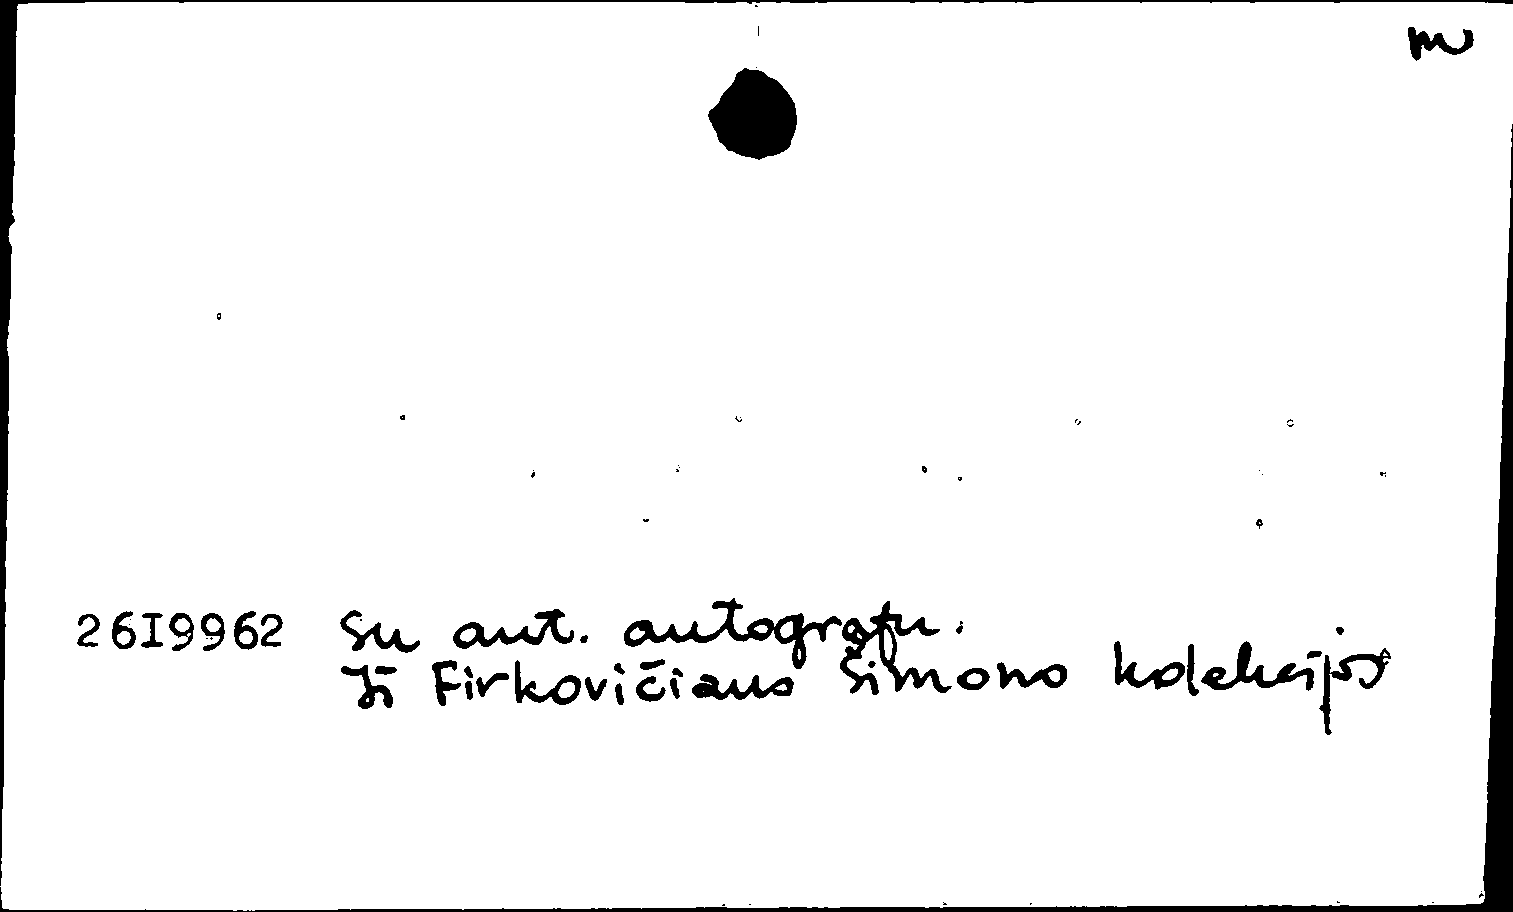 mu
26I9962 Su aut. autografu.
Iš Firkovičiaus Šimono kolekcijos